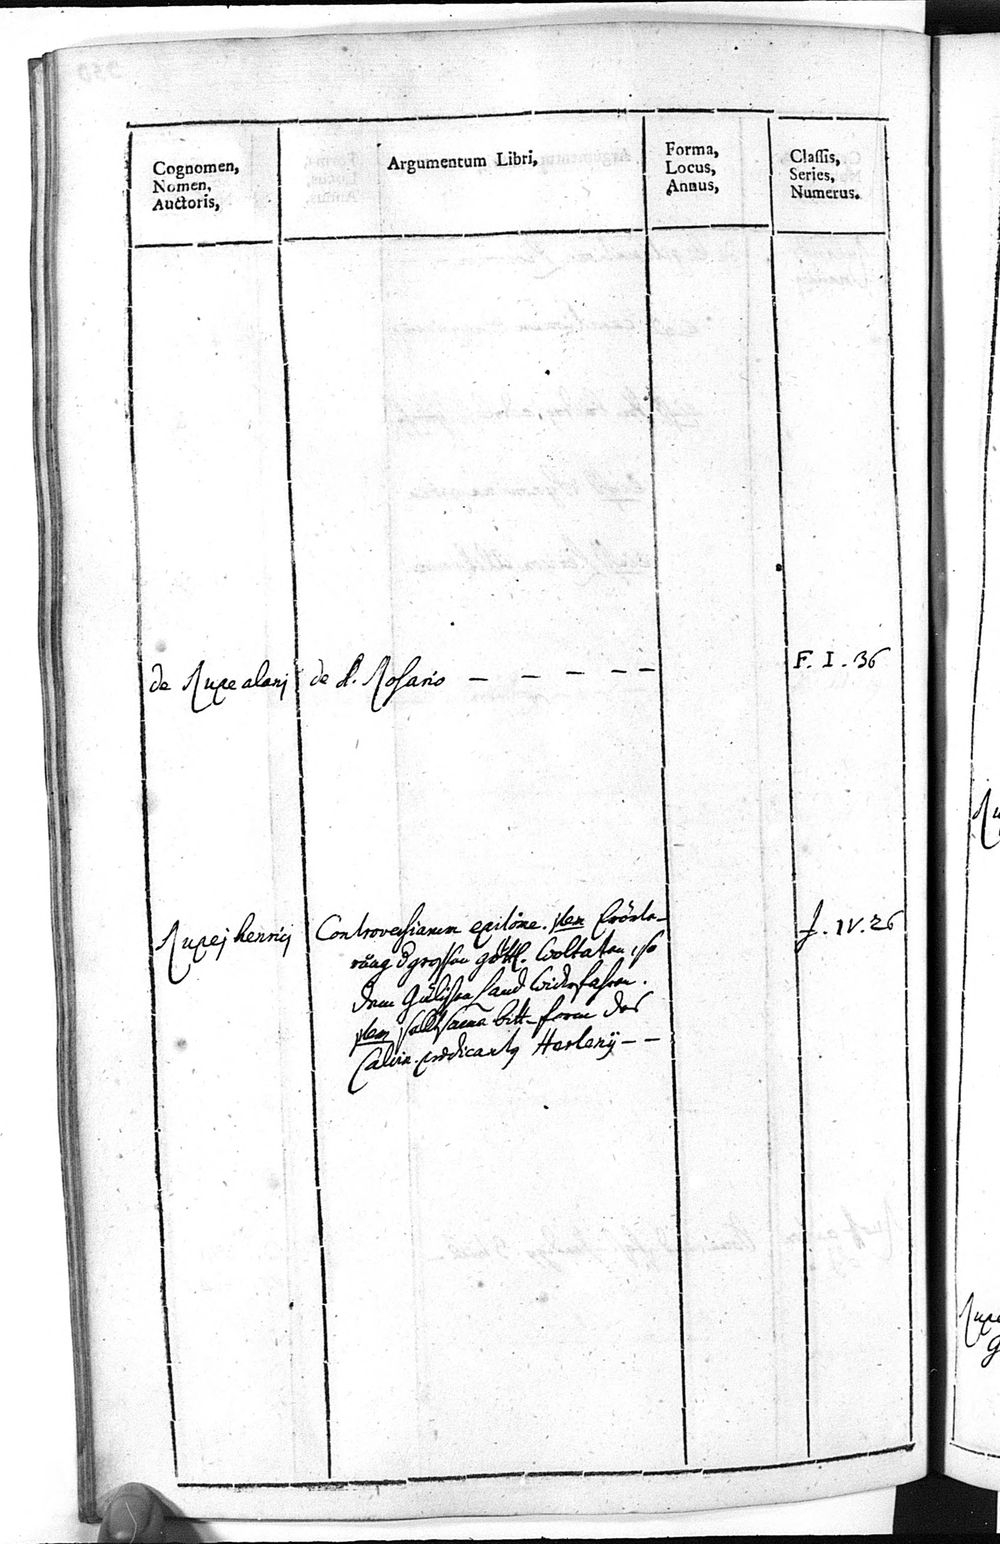 Cognomen,
Nomen,
Auctoris,
Argumentum Libri,
Forma,
Locus,
Annus,
Classis,
Series,
Numerus.
de Rupe alani de S. Rosario — — — — —
F. I. 36
Rupej henrici Controversiarum epitome. Item Erörte-
rung d grossen göttl. Woltaten, so
dem Gülischen Land widerfahren.
Item bitt-form des
Calvin. prædicants Herleny — —
J. IV. 26